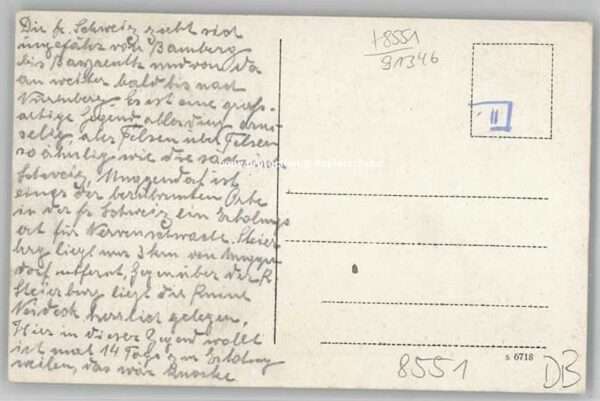 Die fr. Schweiz zieht sich
ungefähr von Bamberg
bis Bayreuth und von da
an weiter bald bis nach
Nürenberg. Es ist eine groß-
artige Gegend allerdings
selbig, aber Felsen über Felsen
so ähnlig wie die säch.
Schweiz, Muggendorf ist
eines der berühmten Orte
in der fr. Schweiz ein Erholungs
ort für Nervenschwache. Steier
berg liegt nur 3 km von Muggen
dorf entfernt, Gegenüber der R.
Steierburg liegt die Ruine
Neideck herrlich gelegen.
Hier in dieser Gegend wollt
ich mal 14 Tage zur Erholung
weilen, das wär Knorke
+8551
91346
II
8551
s 6718
DB